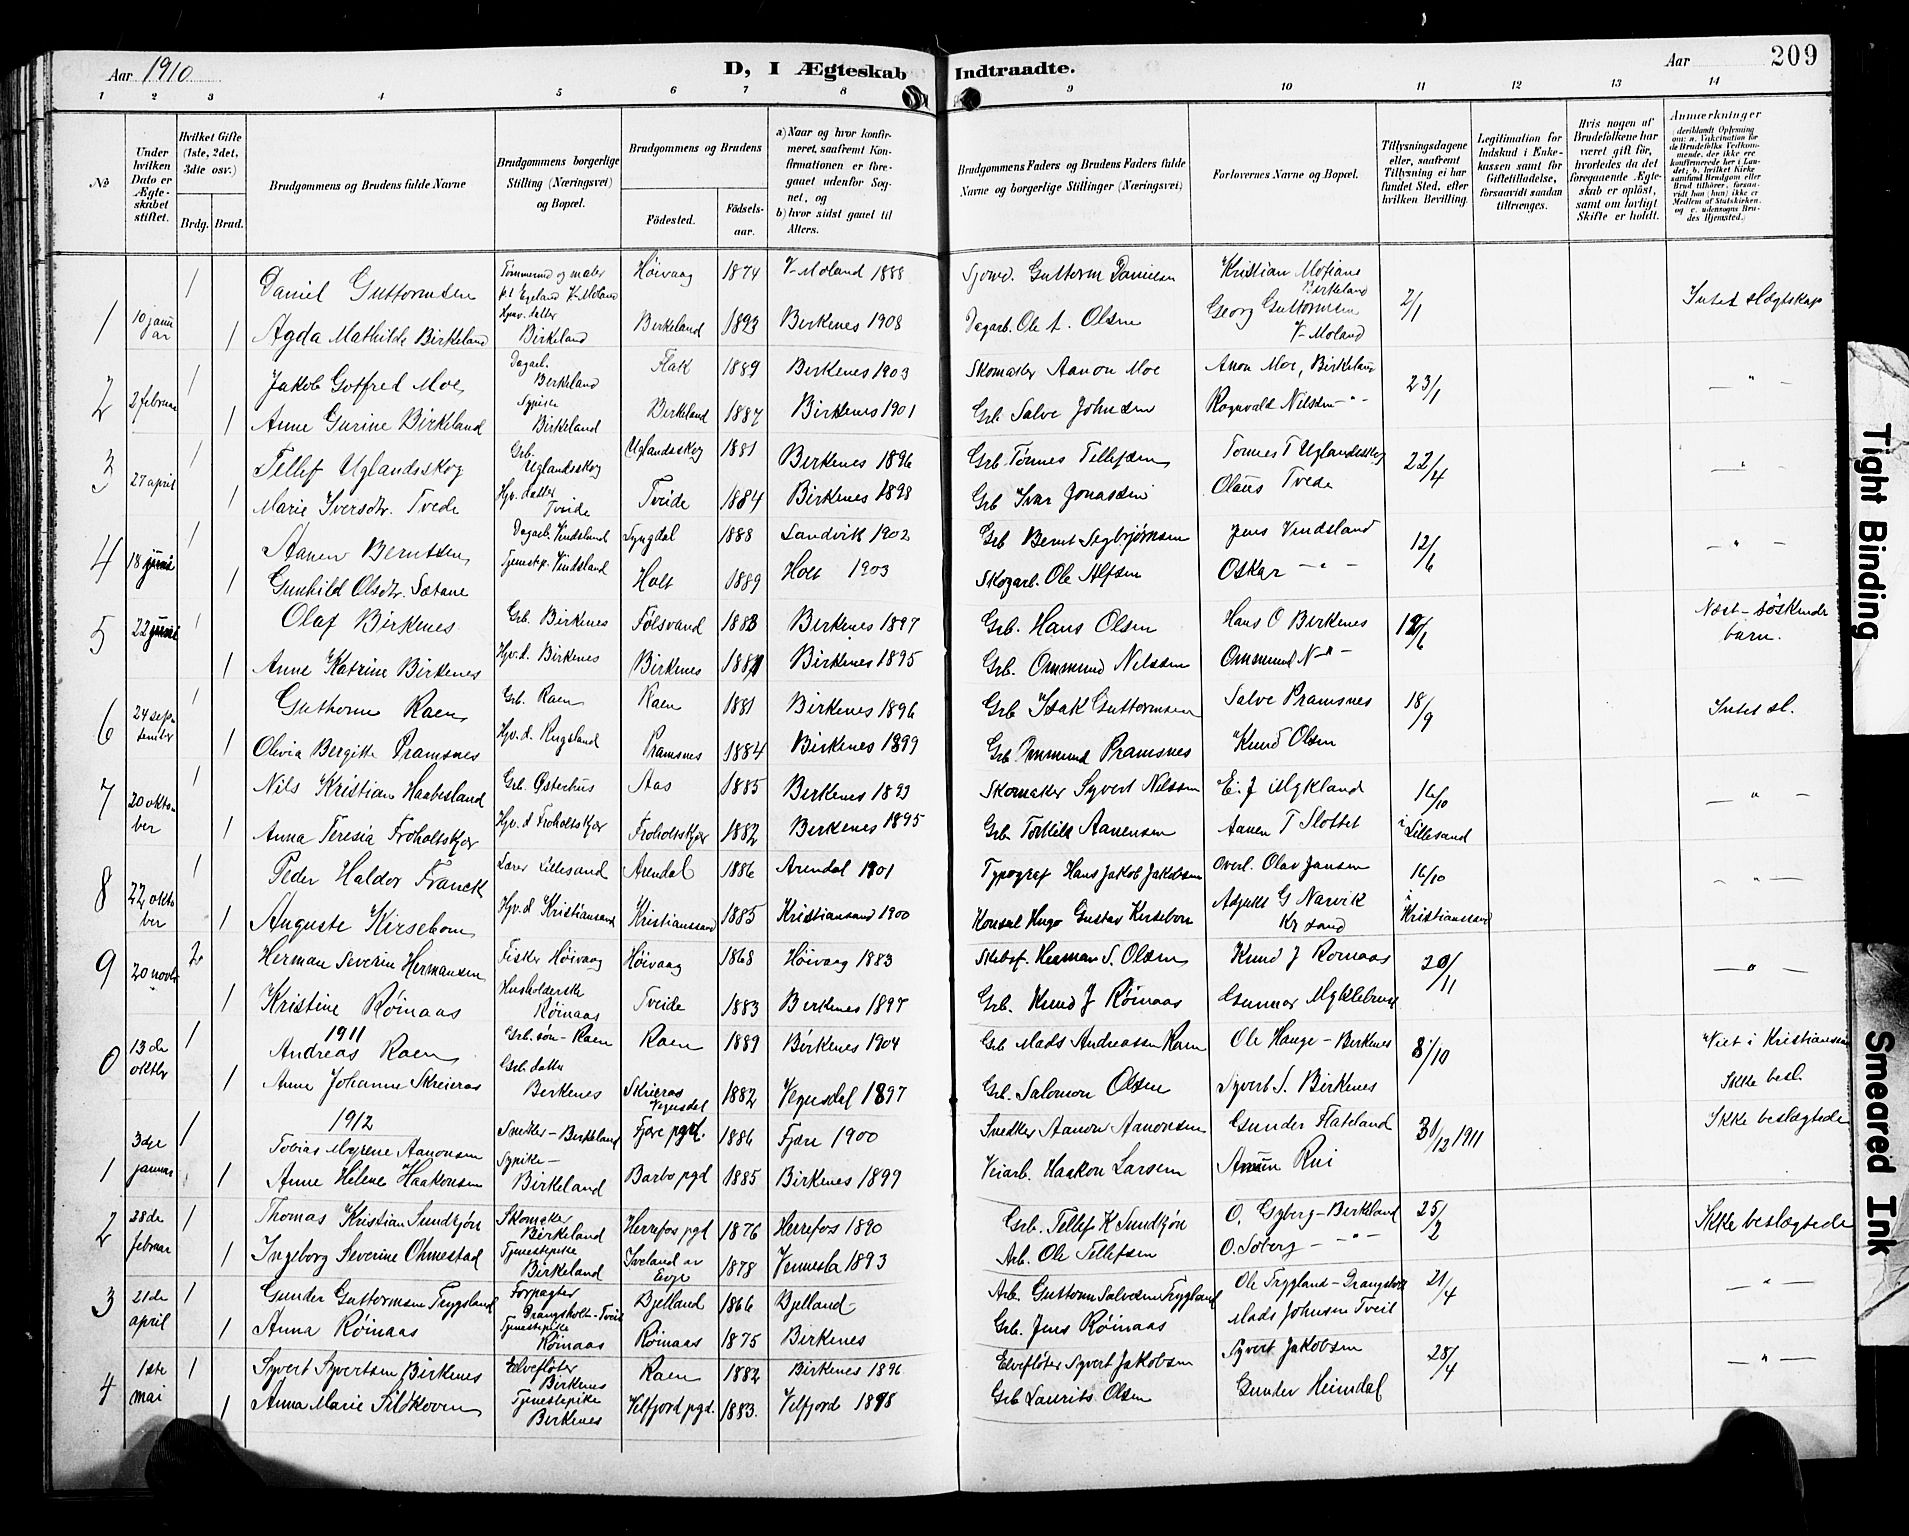 Aar 1910
D, I Ægteskab Indtraadte.
Aar
209
1 2 3 4 5 6 7 8 9 10 11 12 13 14
No
Under hvilken Dato er Ægteskabet stiftet.
Hvilket Gifte (1ste, 2det, 3die osv.)
Brdg. Brud.
Brudgommens og Brudens fulde Navne
Brudgommens borgerlige Stilling (Næringsvei) og Bopæl.
Brudgommens og Brudens
Fødested.
Fødselsaar.
a) Naar og hvor konfirmeret, saafremt Konfirmationen er foregaaet udenfor Sognet, og
b) hvor sidst gaaet til Alters.
Brudgommens Faders og Brudens Faders fulde Navne og borgerlige Stillinger (Næringsvei)
Forlovernes Navne og Bopæl.
Tillysningsdagene eller, saafremt Tillysning ei har fundet Sted, efter hvilken Bevilling.
Legitimation for Indskud i Enkekassen samt for Giftetilladelse, forsaavidt saadan tiltrænges.
Hvis nogen af Brudefolkene har været gift før, hvorledes da det foregaaende Ægteskab er opløst, samt om lovligt Skifte er holdt.
Anmerkninger
1 10 januar 1 Daniel Guttormsen Tømmermd og maler p.t. Egeland V-Moland Høivaag 1874 V-Moland 1888 Sjømd. Guttorm Danielsen Kristian Birkeland 2/1 Intet slægtskap
1 Agda Mathilde Birkeland Hjv. datter Birkeland Birkeland 1893 Birkenes 1908 Dagarb. Ole A. Olsen Georg Guttormsen V-Moland
2 2 februar 1 Jakob Gotfred Moe Dagarb. Birkeland Flak 1889 Birkenes 1903 Skomaker Aanon Moe Anon Moe, Birkeland 23/1 — " —
1 Anne Gurine Birkeland Sypike Birkeland Birkeland 1887 Birkenes 1901 Grb. Salve Johnsen Ragnvald Nilsen - " -
3 27 april 1 Tellef Uglandsskog Grb. Uglandsskog Uglandsskog 1881 Birkenes 1896 Grb. Tønnes Tellefsen Tønnes T Uglandsskog 22/4 — " —
1 Marie Iversdtr. Tvede Hjv. datter Tveide Tveide 1884 Birkenes 1898 Grb Ivar Jonassen Olaus Tvede
4 18 juni 1 Aanen Berntsen Dagarb. Vindsland Lyngdal 1888 Landvik 1902 Grb Bernt Segbjørnsen Jens Vindsland 12/6 — " —
1 Gunhild Olsdtr. Sætane Tjenestp. Vindsland Holt 1889 Holt 1903 Skogarb. Ole Alfsen Oskar — " —
5 22 juni 1 Olaf Birkenes Grb. Birkenes Følsvand 1883 Birkenes 1897 Grb. Hans Olsen Hans O Birkenes 12/6 Næst-søskendebarn.
1 Anne Katrine Birkenes Hjv. d. Birkenes Birkenes 1881 Birkenes 1895 Grb. Ommund Nilssen Ommund N — " —
6 24 september 1 Guthorm Raen Grb. Raen Raen 1881 Birkenes 1896 Grb Isak Guttormsen Salve Pramsnes 18/9 Intet sl.
1 Olivia Bergitte Pramsnes Hjv. d. Rugsland Pramsnes 1884 Birkenes 1899 Grb Ommund Pramsnes Knud Olsen
7 20 oktober 1 Nils Kristian Haabesland Grb. Østerhus Aas 1885 Birkenes 1899 Skomaker Syvert Nilssen E. J Mykland 16/10 i Lillesand — " —
1 Anna Teresia Froholtskjær Hjv. d Froholtskjær Froholtskjær 1882 Birkenes 1895 Grb Torkild Aanensen Aanen T Slottet
8 22 oktober 1 Peder Haldor Franck Lærer Lillesand Arendal 1886 Arendal 1901 Typograf Hans Jakob Jakobsen Overl. Olav Jansen 16/10 i Kristianssand — " —
1 Auguste Kirsebom Hjv. d Kristianssand Kristianssand 1885 Kristianssand 1900 Konsul Hugo Gustav Kirsebom Adjunkt G Narvik Kr sand
9 20 novbr 2 Herman Severin Hermansen Fisker Høivaag Høivaag 1868 Høivaag 1883 Skibsf. Herman S. Olsen Knud J Rømaas 20/11 — " —
1 Kristine Røinaas Husholderske Røinaas Tveide 1883 Birkenes 1897 Grb. Knud J Røinaas Gunnar Myklebrusd
1911
0 13de oktbr 1 Andreas Raen Grb. søn - Raen Raen 1889 Birkenes 1904 Grb Mads Andreassen Raen Ole Hauge - Birkenes 8/10 Viet i Kristianssand Ikke besl.
1 Anne Johanne Skreieros Grb. datter Birkenes Skrieros Vegusdal 1882 Vegusdal 1897 Grb. Salomon Olsen Syvert S. Birkenes
1912
1 3dje januar 1 Tobias Myrene Aanonsen Snedker - Birkeland Fjære pgd. 1886 Fjære 1900 Snedker Aanon Aanonsen Gunder Flateland 31/12 1911 Ikke beslægtede
1 Anne Helene Haakonsen Sypike - Birkeland Barbo pgd 1885 Birkenes 1899 Veiarb. Haakon Larsen Rui
2 28de februar 1 Thomas Kristian Sundtjøn Skomaker Birkeland Herrefos pgd 1876 Herrefos 1890 Grb. Tellef K Sundtjøn O. Gyberg - Birkland 25/2 Ikke beslægtede
1 Ingeborg Severine Ohmestad Tjenestepike Birkeland Iveland av Evje 1878 Vennesla 1893 Arb. Ole Tellefsen O. Søberg — " —
3 21de april 1 Gunder Guttormsen Trygsland Forpagter Drangsholt - Tveit Bjelland 1866 Bjelland Arb. Guttorm Salvesen Trygland Ole Trygland - Drangsholt 21/4 — " —
1 Anna Røinaas Tjenestepike Røinaas Røinaas 1875 Birkenes Grb. Jens Røinaas Mads Johnsen Tveit
4 1ste mai 1 Syvert Syvertsen Birkenes Elvefløter Birkenes Raen 1882 Birkenes 1896 Elvefløter Syvert Jakobsen Syvert Jakobsen 28/4 — " —
1 Anna Marie Sildkoven Tjenestepike Birkenes Velfjord pgd. 1883. Velfjord 1898 Grb Laurits Olsen Gunder Heimdal
Tight Binding
Smeared Ink